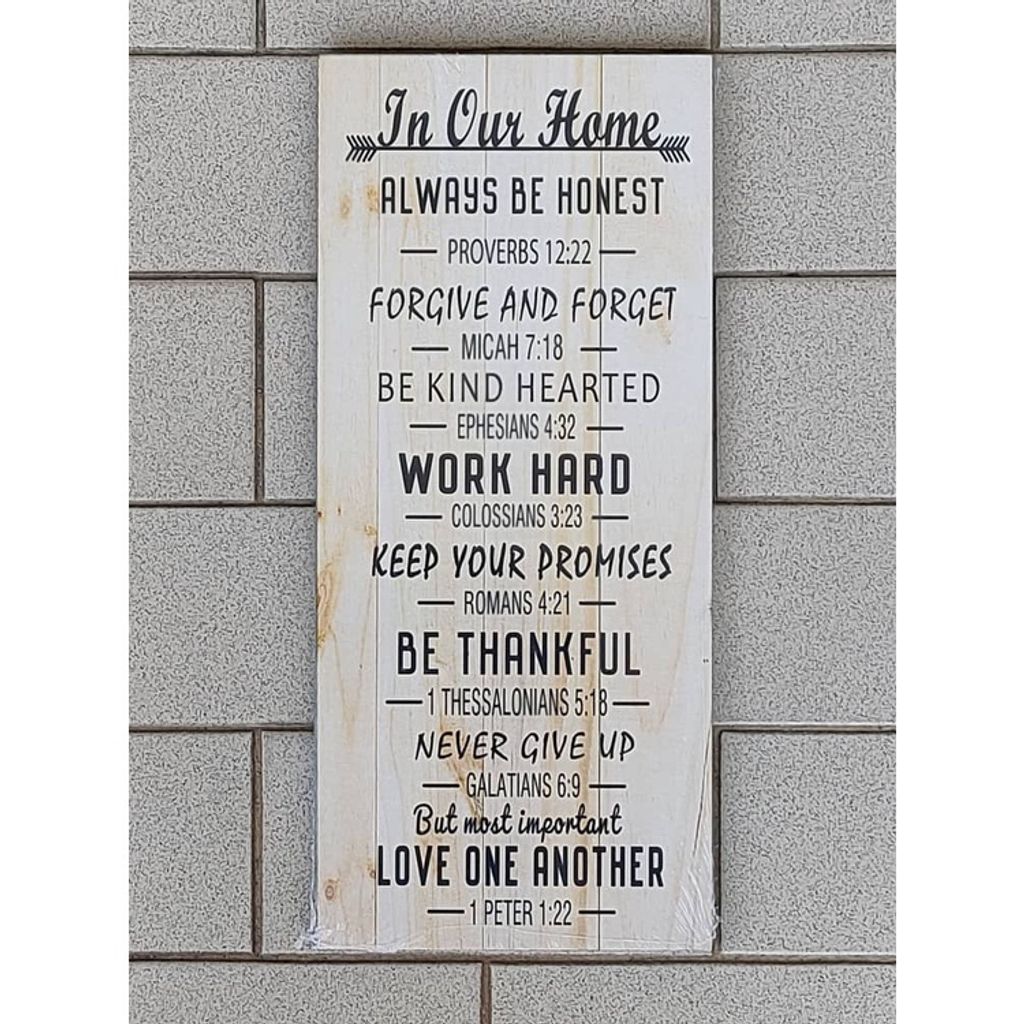 In Our Home
ALWAYS BE HONEST
PROVERBS 12:22
FORGIVE AND FORGET
MICAH 7:18
BE KIND HEARTED
EPHESIANS 4:32
WORK HARD
COLOSSIANS 3:23
KEEP YOUR PROMISES
ROMANS 4:21
BE THANKFUL
1 THESSALONIANS 5:18
NEVER GIVE UP
GALATIANS 6:9
But most important
LOVE ONE ANOTHER
1 PETER 1:22